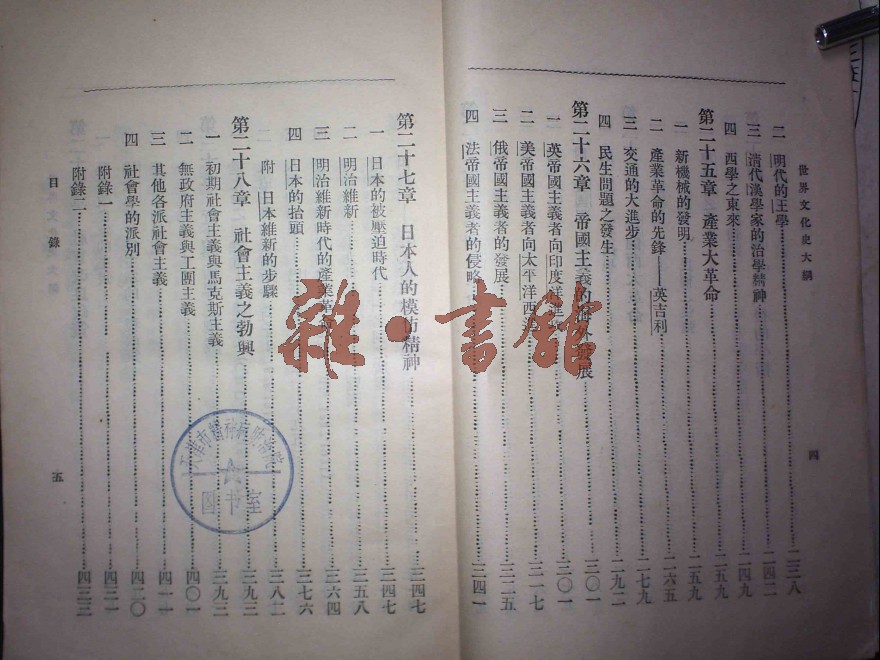 世界文化史大綱
四
二 明代的王學……二三八
三 清代漢學家的治學精神……二四二
四 西學之東來……二四九
第二十五章 產業大革命……二五九
一 新機械的發明……二五九
二 產業革命的先鋒——英吉利……二六五
三 交通的大進步……二七九
四 民生問題之發生……二九二
第二十六章 帝國主義的海外發展……三〇一
一 英帝國主義者向印度洋……三〇一
二 美帝國主義者向太平洋西……三一七
三 俄帝國主義者的發展……三二五
四 法帝國主義者的侵略……三四一
第二十七章 日本人的模仿精神……三四七
一 日本的被壓迫時代……三四七
二 明治維新……三五八
三 明治維新時代的產業革……三六四
四 日本的抬頭……三七六
附 日本維新的步驟……三八二
第二十八章 社會主義之勃興……三九三
一 初期社會主義與馬克斯主義……三九三
二 無政府主義與工團主義……四〇一
三 其他各派社會主義……四一一
四 社會學的派別……四二〇
附錄一……四三一
附錄二……四三三
目錄
五
雜·書館
图书室